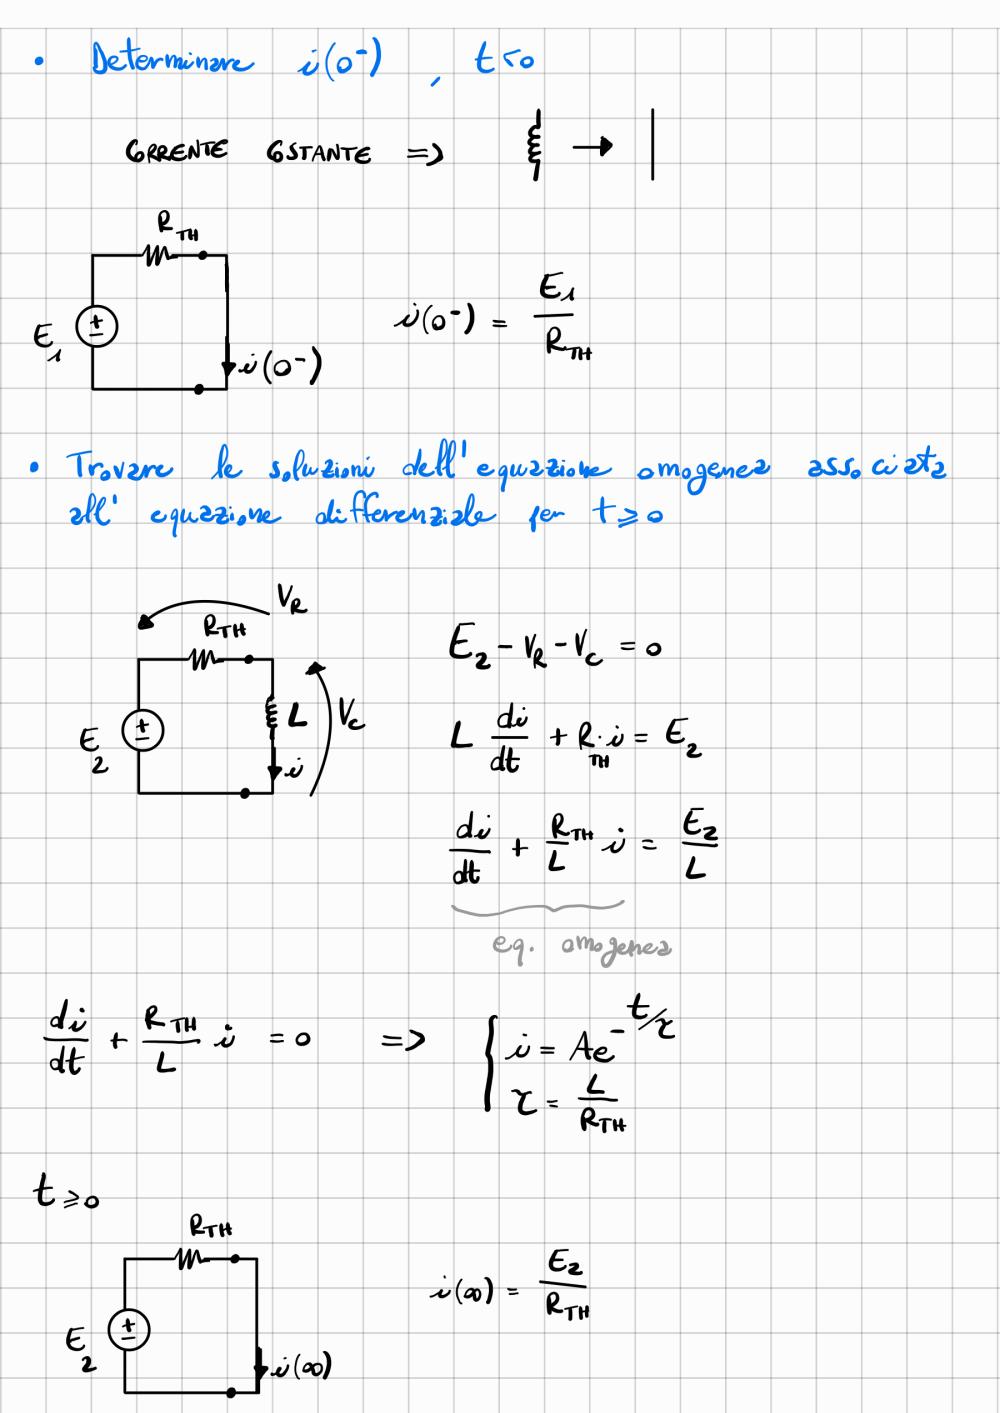 • Determinare i(0⁻), t<0
CORRENTE COSTANTE => →
R_TH
E_1
i(0⁻)
i(0⁻) = E_1 / R_TH
• Trovare le soluzioni dell'equazione omogenea associata
all'equazione differenziale per t ≥ 0
V_R
R_TH
E_2
L
V_C
i
E_2 - V_R - V_C = 0
L di/dt + R_TH · i = E_2
di/dt + R_TH/L i = E_2/L
eq. omogenea
di/dt + R_TH/L i = 0 => { i = Ae^(-t/τ)
τ = L/R_TH
t ≥ 0
R_TH
E_2
i(∞)
i(∞) = E_2 / R_TH